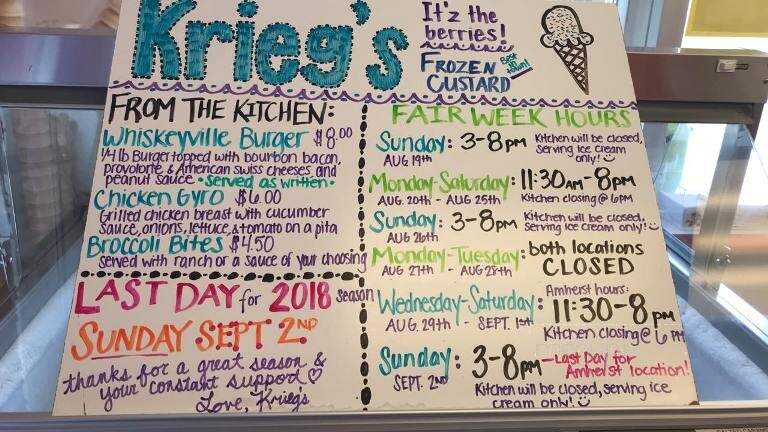 Krieg's
It'z the
berries!
FROZEN
CUSTARD
Best
in
town!
FROM THE KITCHEN:
Whiskeyville Burger $8.00
1/4 lb Burger topped with bourbon bacon,
provolone & American swiss cheeses, and
peanut sauce •served as written•
Chicken Gyro $6.00
Grilled chicken breast with cucumber
sauce, onions, lettuce, & tomato on a pita
Broccoli Bites $4.50
served with ranch or a sauce of your choosing
LAST DAY for 2018 season
SUNDAY SEPT 2ND
thanks for a great season &
your constant support ♡
Love, Kriegs
FAIR WEEK HOURS
Sunday: 3-8pm Kitchen will be closed,
AUG 19th serving ice cream
only!
Monday-Saturday: 11:30AM-8PM
AUG. 20th - AUG 25th Kitchen closing @ 6pm
Sunday: 3-8pm Kitchen will be closed,
AUG 26th Serving ice cream only!
Monday-Tuesday: both locations
AUG 27th - AUG 28th CLOSED
Wednesday-Saturday: Amherst hours:
AUG. 29th - SEPT. 1st 11:30-8pm
Kitchen closing @ 6 PM
Sunday: 3-8pm -Last Day for
SEPT. 2nd Amherst location!
Kitchen will be closed, serving ice
cream only!